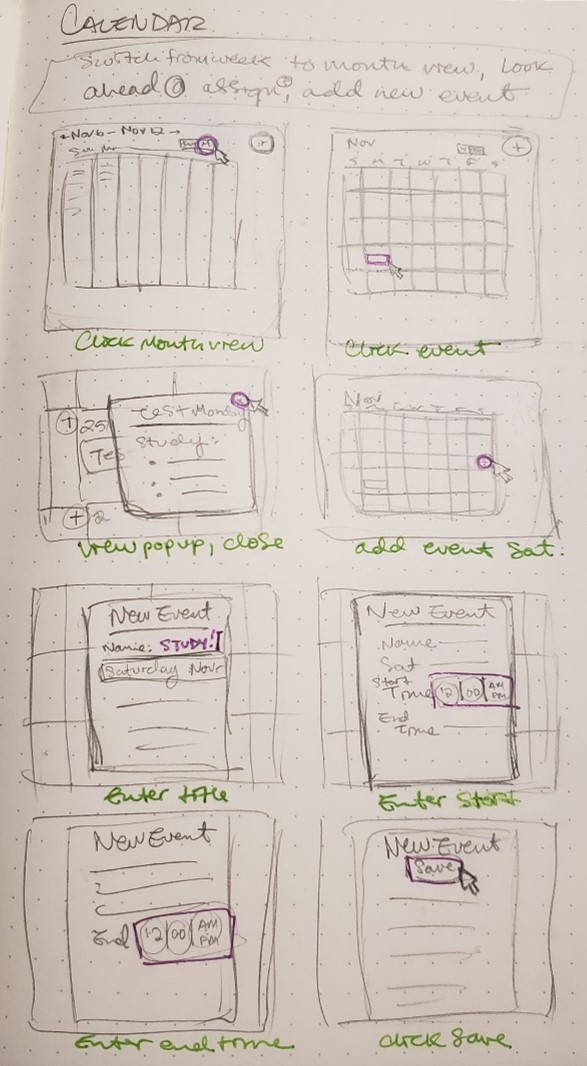 CALENDAR
Switch from week to month view, Look
ahead @ assign, add new event
Nov 6 - Nov 12
Sun Mo
M
+
Click Month view
Nov
S M T W T F S
+
Click event
+ 25
Tes
+ 2
test Monday
Study:
view popup, close
Nov
add event Sat.
New Event
Name: STUDY!
Saturday Nov
Enter title
New Event
Name
Sat
Start
Time 12 00 AM
PM
End
Time
Enter Start
New Event
End 12 00 AM
PM
Enter end time
New Event
Save
click save